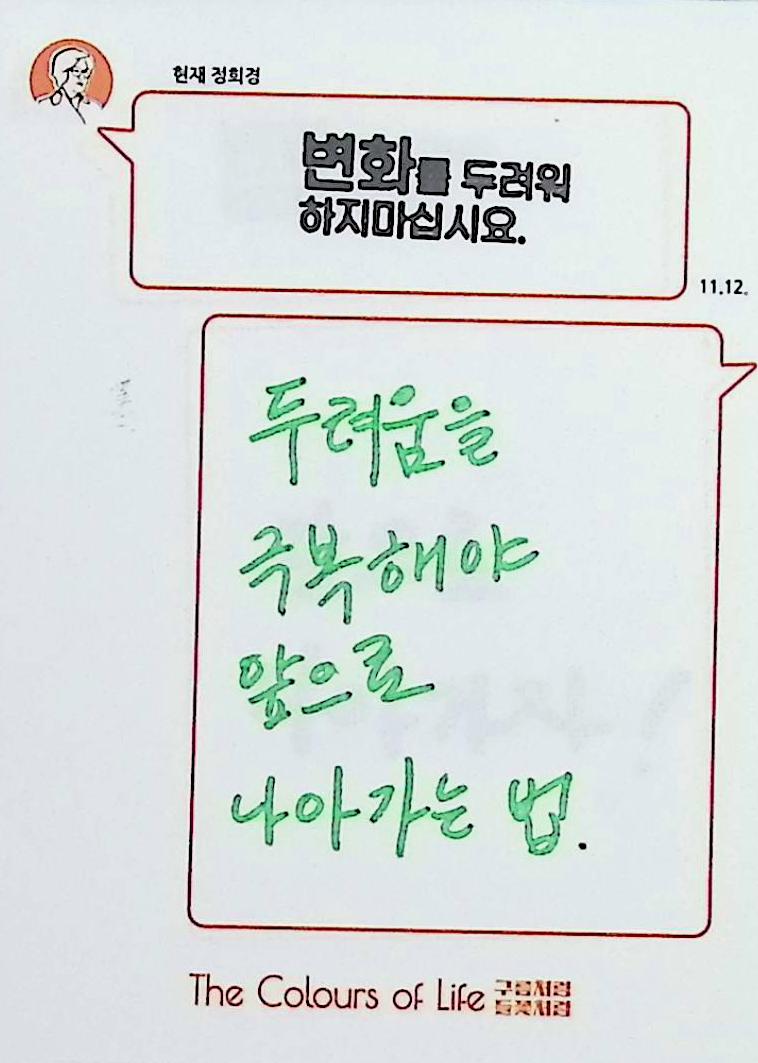 현재 정희경
변화를 두려워
하지마십시요.
11.12.
두려움을
극복해야
앞으로
나아가는 법.
The Colours of Life 구름처럼
들꽃처럼